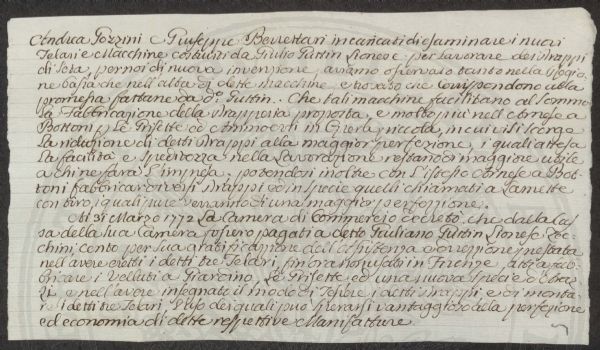 Andrea Pozzini e Giuseppe Berrettari incaricati di esaminare i nuovi
Telari e Macchine costruiti da Giulio Guttin Lionese per lavorare dei Drappi
di Seta, per noi di nuova invenzione, aviamo osservato tanto nella
ne bassa che nell'altra di dette Macchine e trovato che Corrispondono alla
promessa fattane da do. Guttin. Che tali macchine facilitano al sommo
la Fabbricazione della Drapperia proposta, e molto più nell'ornese a
Bottoni p. le Grisette ed Ammoerri in Opera piccola, in cui vi si scorge
la riduzione di detti Drappi alla maggior perfezione, i quali attesa
la facilità e Speditezza nella Lavorazione restano di maggiore utile
a chi ne farà l'impresa, potendosi inoltre con l'istesso Ornese a Bot-
toni fabbricar diversi Drappi ed in specie quelli chiamati a Lamette
con tiro, i quali pure verranno di una maggior perfezione.
Al 31 Marzo 1772 La Camera di Commercio decretò, che dalla Cas-
sa della sua Camera fossero pagati a detto Giuliano Guttin Lionese Zec-
chini cento per sua gratificazione dell'assistenza e direzione prestata
nell'avere eretti i detti tre Telari, finora non usati in Firenze, atti a fab-
bricare i Velluti a Giardino, le Grisette ed una nuova specie di
e nell'avere insegnato il modo di Tessere i detti Drappi, e di monta-
re i detti tre Telari, l'Uso dei quali può sperarsi vantaggioso alla perfezione
ed economia di dette respettive Manifatture.